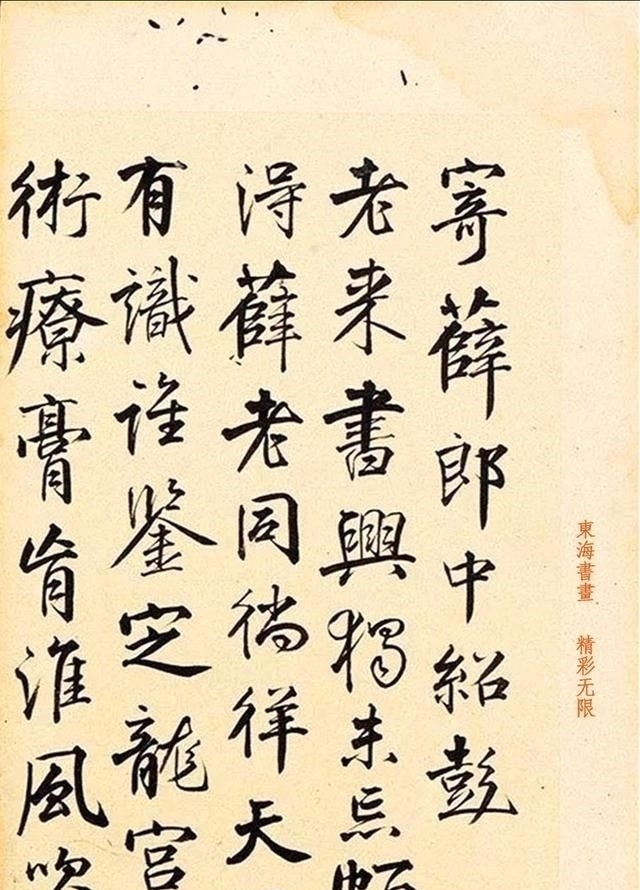 寄薛郎中紹彭
老来書興獨未忘頗
得薛老同徜徉天
有識誰鑒定龍宫
術療膏肓淮風吹
東海書畫 精彩无限